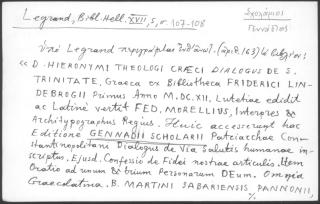 Legrand, Bibl. Hell. XVII, 5, σ. 107-108
Σχολάριος
Γεννάδιος
ὑπὸ Legrand περιγράφεται ἔκδοσις (ἀριθ. 163) τὸ βιβλίον:
« D. HIERONYMI THEOLOGI GRÆCI DIALOGUS DE S.
TRINITATE, Graeca ex Bibliotheca FRIDERICI LIN-
DEBROGII Primus Anno M.DC.XII. Lutetiae edidit
ac Latine vertit FED. MORELLIUS, Interpres &
Architypographus Regius. Huic accesserunt hac
Editione GENNADII SCHOLARII Patriarchae Con-
stantinopolitani Dialogus de Via Salutis humanae in-
scriptus. Ejusd. Confessio de Fidei nostrae articulis. Item
Oratio ad unum & trium Personarum DEum. Omnia
Graecolatina. B. MARTINI SABARIENSIS PANNONII,